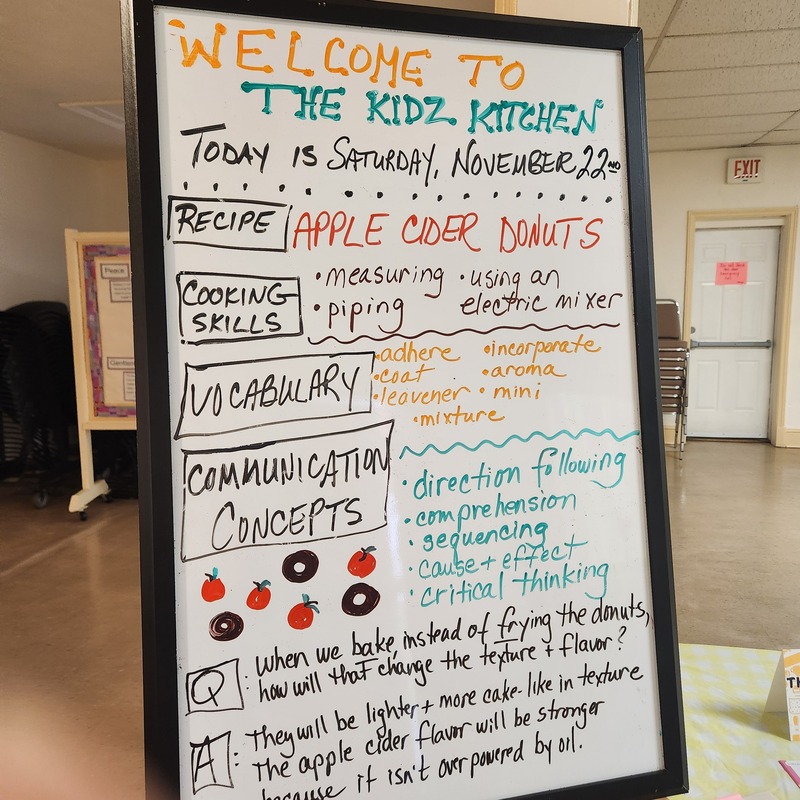 WELCOME TO
THE KIDZ KITCHEN
TODAY IS SATURDAY, NOVEMBER 22ND
RECIPE APPLE CIDER DONUTS
COOKING SKILLS
• measuring • using an
• piping electric mixer
VOCABULARY
• adhere • incorporate
• coat • aroma
• leavener • mini
• mixture
COMMUNICATION
CONCEPTS
• direction following
• comprehension
• sequencing
• cause + effect
• critical thinking
Q: When we bake, instead of frying the donuts,
how will that change the texture + flavor?
A: They will be lighter + more cake-like in texture
The apple cider flavor will be stronger
because it isn't overpowered by oil.
EXIT